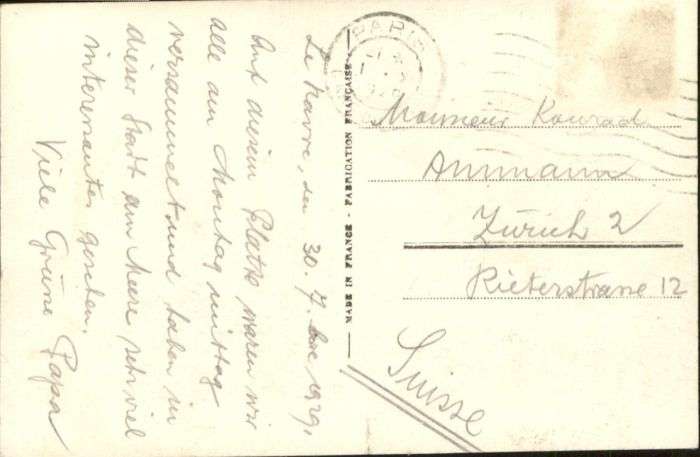 Le Havre, den 30. 7. 1929,
Auf diesem Platze waren wir
alle am Montag mittag
versammelt und haben in
dieser Stadt am Meere sehr viel
interessantes gesehen.
Viele Grüsse Papa
MADE IN FRANCE - FABRICATION FRANÇAISE
PARIS
Monsieur Konrad
Ammann
Zürich 2
Rieterstrasse 12
Suisse